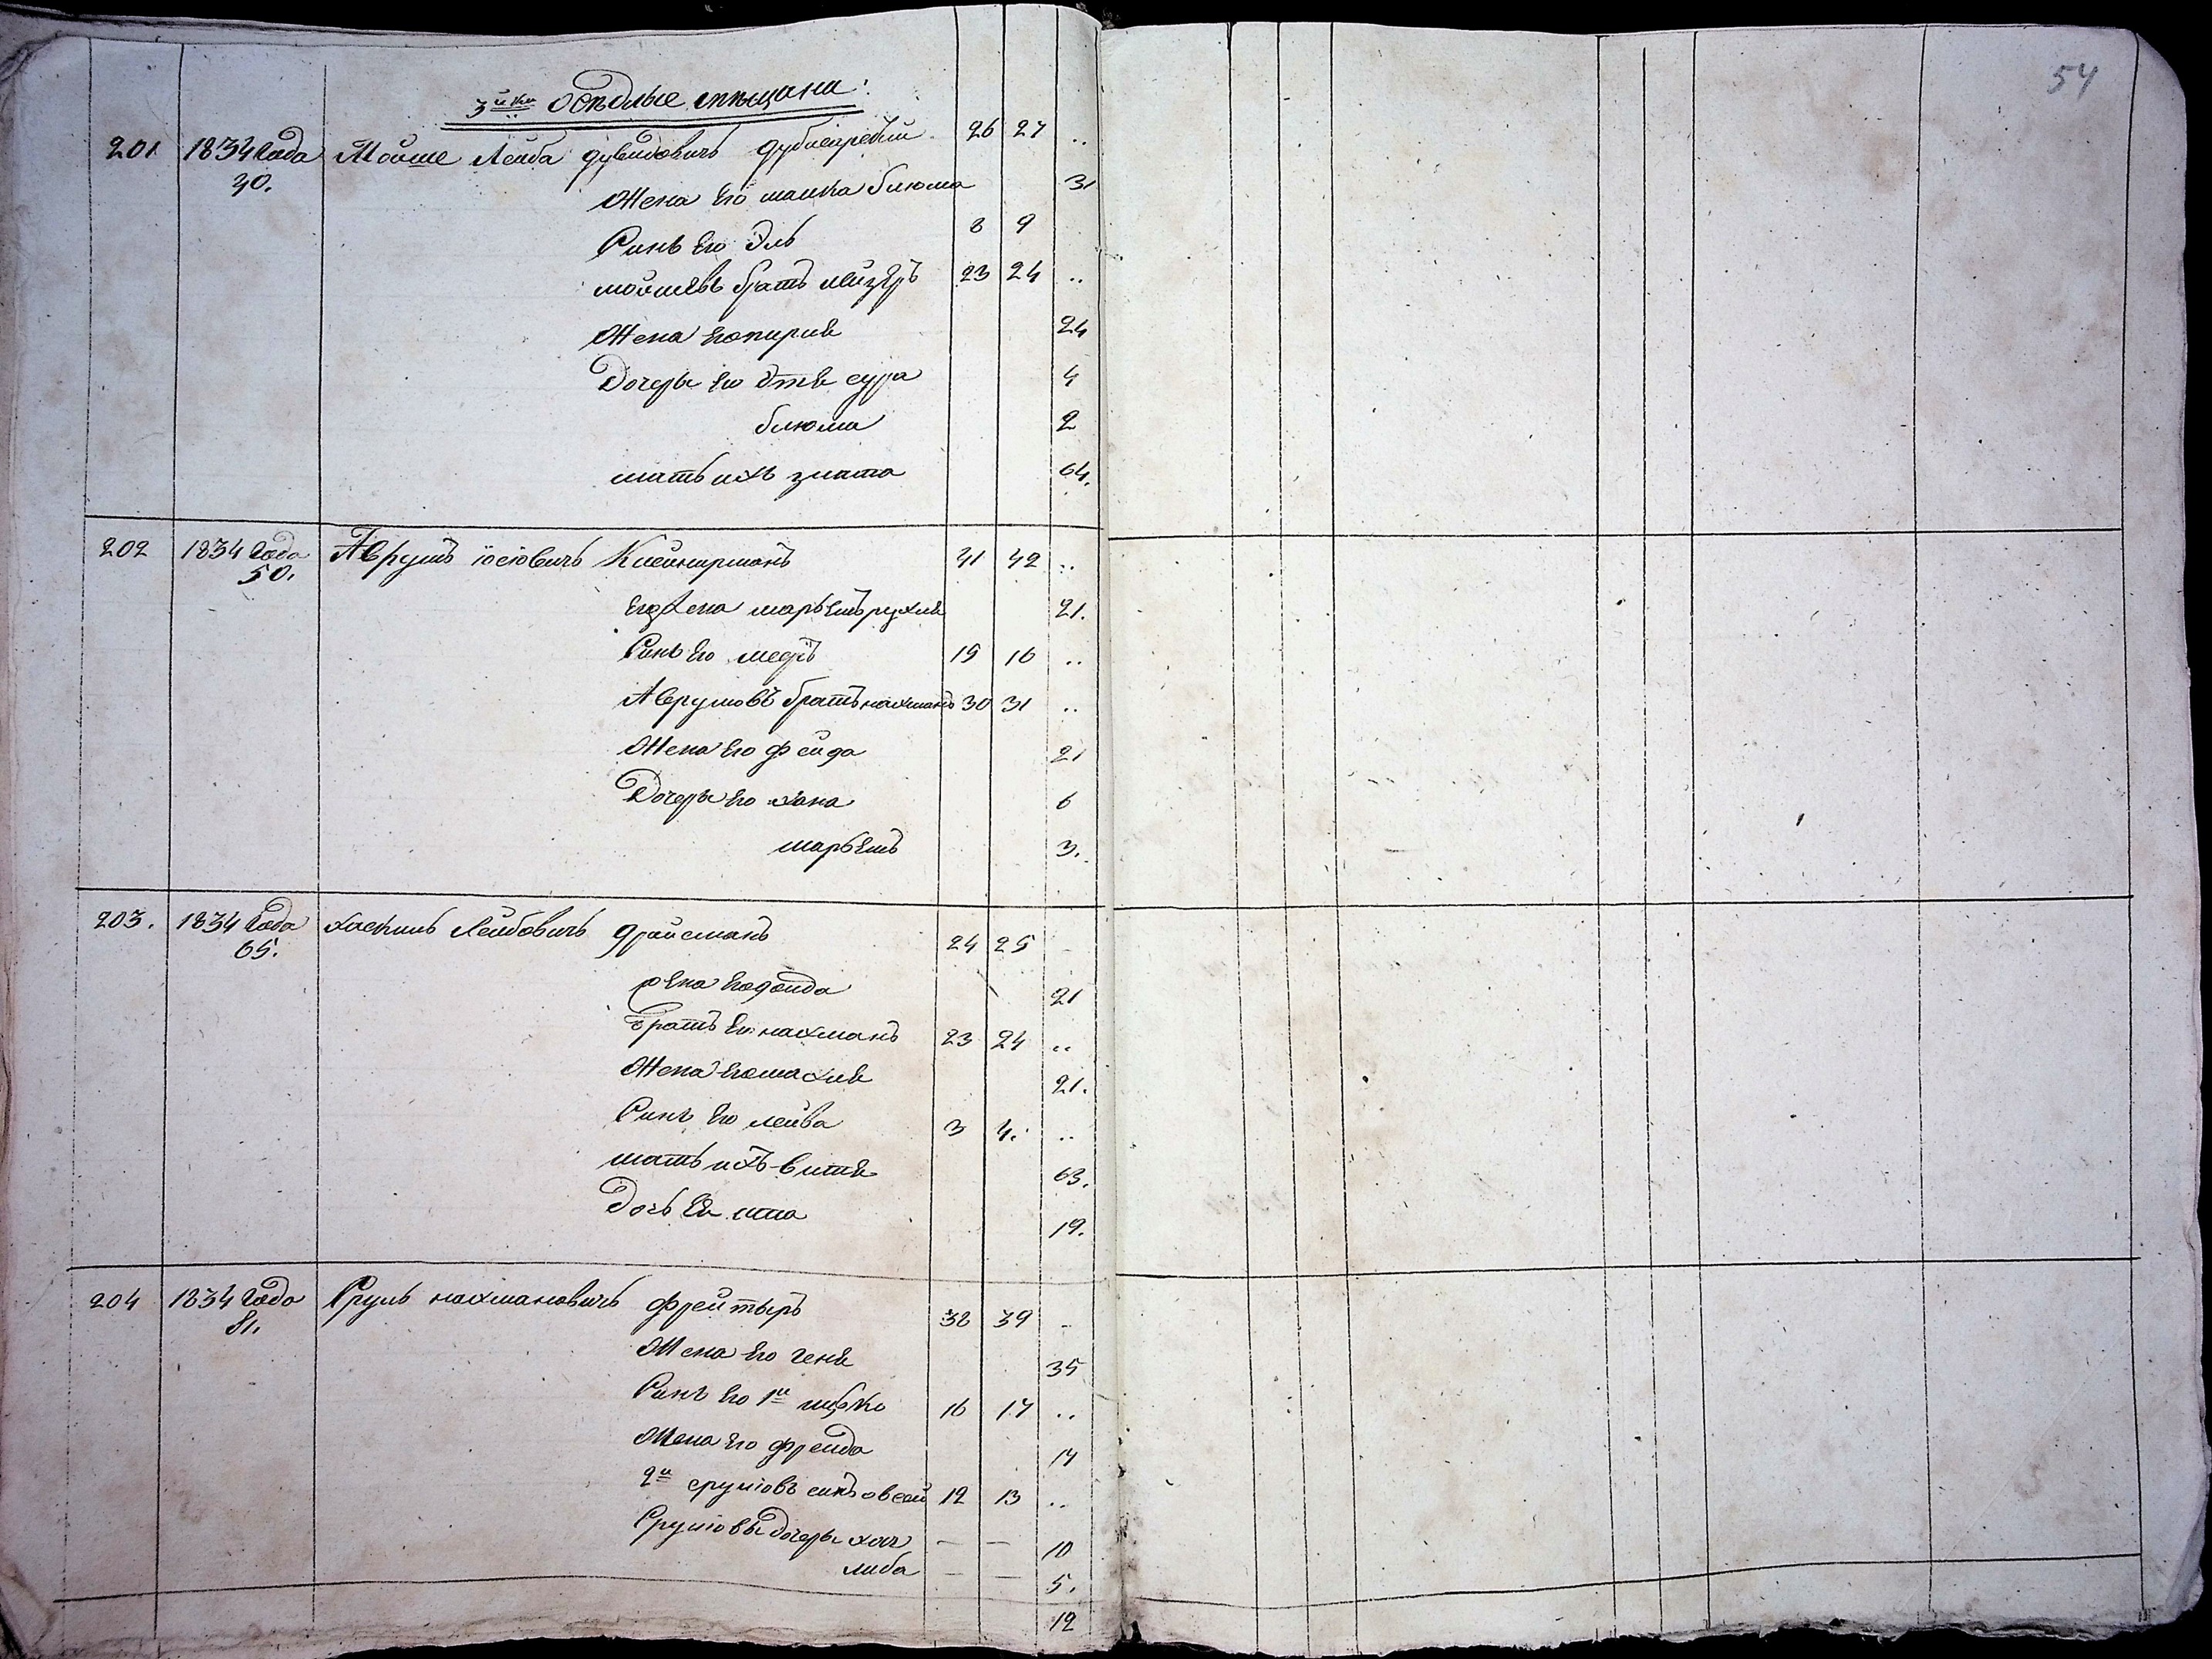 54
3й ки осѣдлые мѣщани:
201 1834 Года Мойше Лейба дувидовичъ 26 27 ..
30.
Жена Его малка блюма 31
Синъ Его Эль 8 9
мойшевъ братъ лейзеръ 23 24 ..
Жена Его пирля 24
Дочеры Его Этля сура 4
блюма 2
мать ихъ злата 64.
202 1834 Года Аврумъ іосіовичъ 41 42 ..
50.
Его Жена марьемъ рухля 21.
Синъ Его мееръ 15 16 ..
Аврумовъ братъ нахманъ 30 31 ..
Жена Его фейда 21
Дочеры Его хана 6
марьемъ 3.
203. 1834 Года хаскиль Лейбовичъ драйсманъ 24 25 -
65.
жена Его донда 21
братъ Его нахманъ 23 24 ..
Жена Его махля 21.
Синъ Его лейба 3 4. ..
мать ихъ витя 63.
Дочь Ея ита 19.
204 1834 Года Сруль нахмановичъ фрейтыръ 38 39 -
81.
Жена Его геня 35
Синъ Его 1й лейбко 16 17 ..
Жена Его фрейда 17
2й сруліовъ синъ овсей 12 13 ..
Сруліовы дочеры хая — — 10
либа — — 5.
12